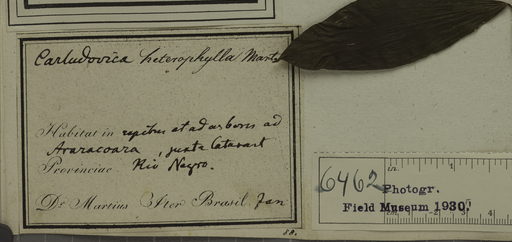 Carludovica heterophylla Mart.
Habitat in rupibus et ad arbores ad
Araracoara, juxta Cataract
Provinciae Rio Negro.
Dr. Martius Iter Brasil. Jan
6462
in.
1
Photogr.
Field Museum 1930.